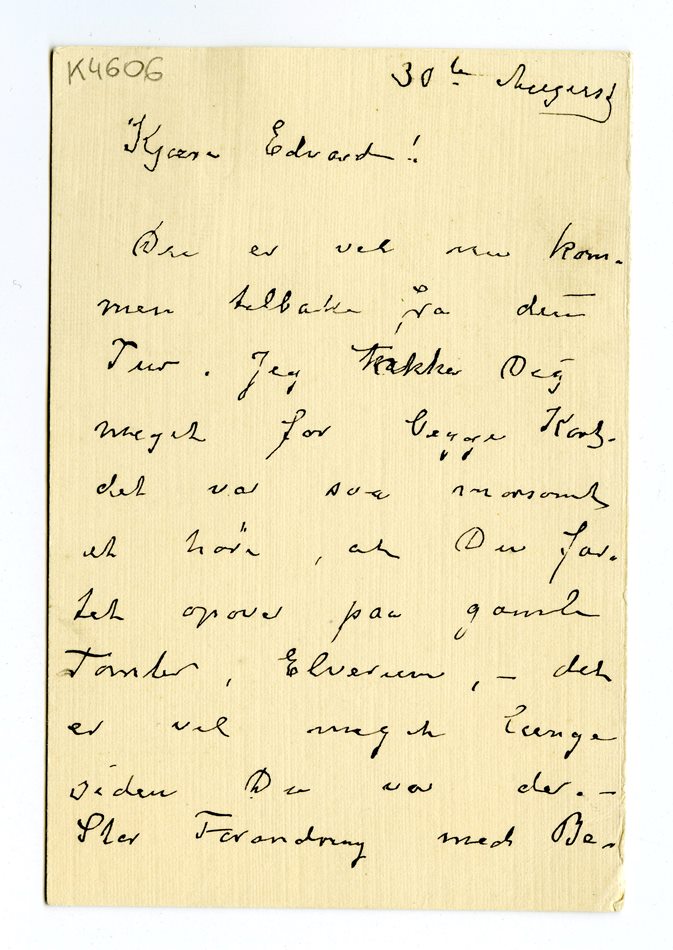 K4606
30te August
Kjære Edvard!
Du er vel nu kom-
men tilbake fra din
Tur. Jeg takker Dig
meget for begge Kort-
det var saa morsomt
at høre, at Du far-
tet opover paa gamle
Tomter, Elverum, – det
er vel meget længe
siden Du var der. –
Stor Forandring med Be-